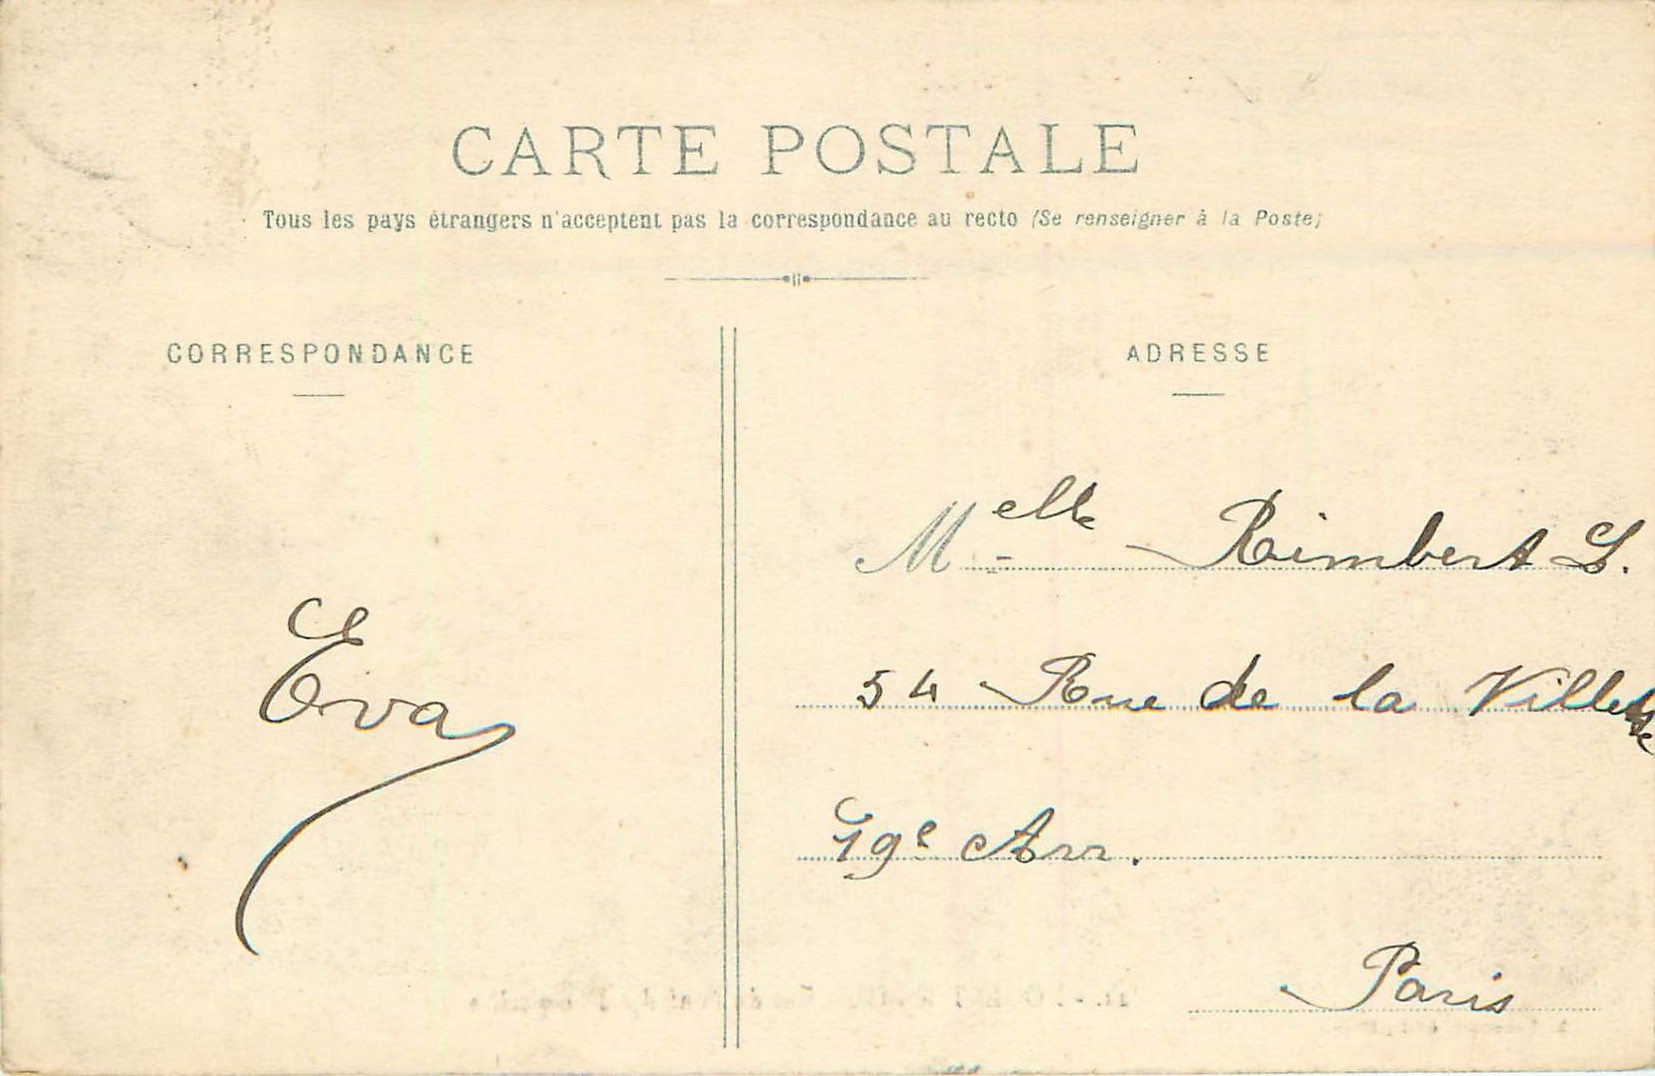 CARTE POSTALE
Tous les pays étrangers n'acceptent pas la correspondance au recto (Se renseigner à la Poste)
CORRESPONDANCE
ADRESSE
Melle Rimbert L.
54 Rue de la Villette
Eva
19e Arr.
Paris